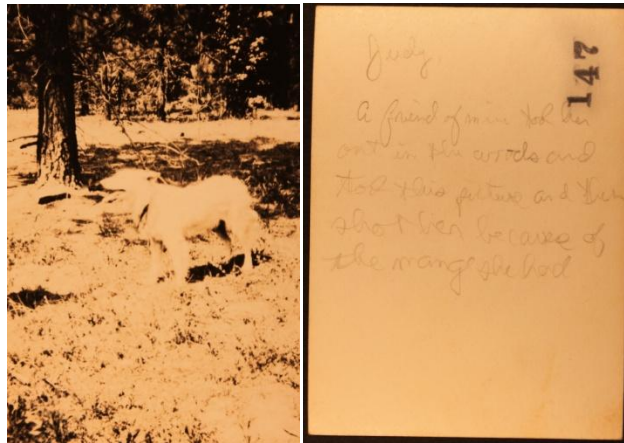 Judy,
147
A friend of mine took her
out in the woods and
took this picture and then
shot her because of
the mange she had